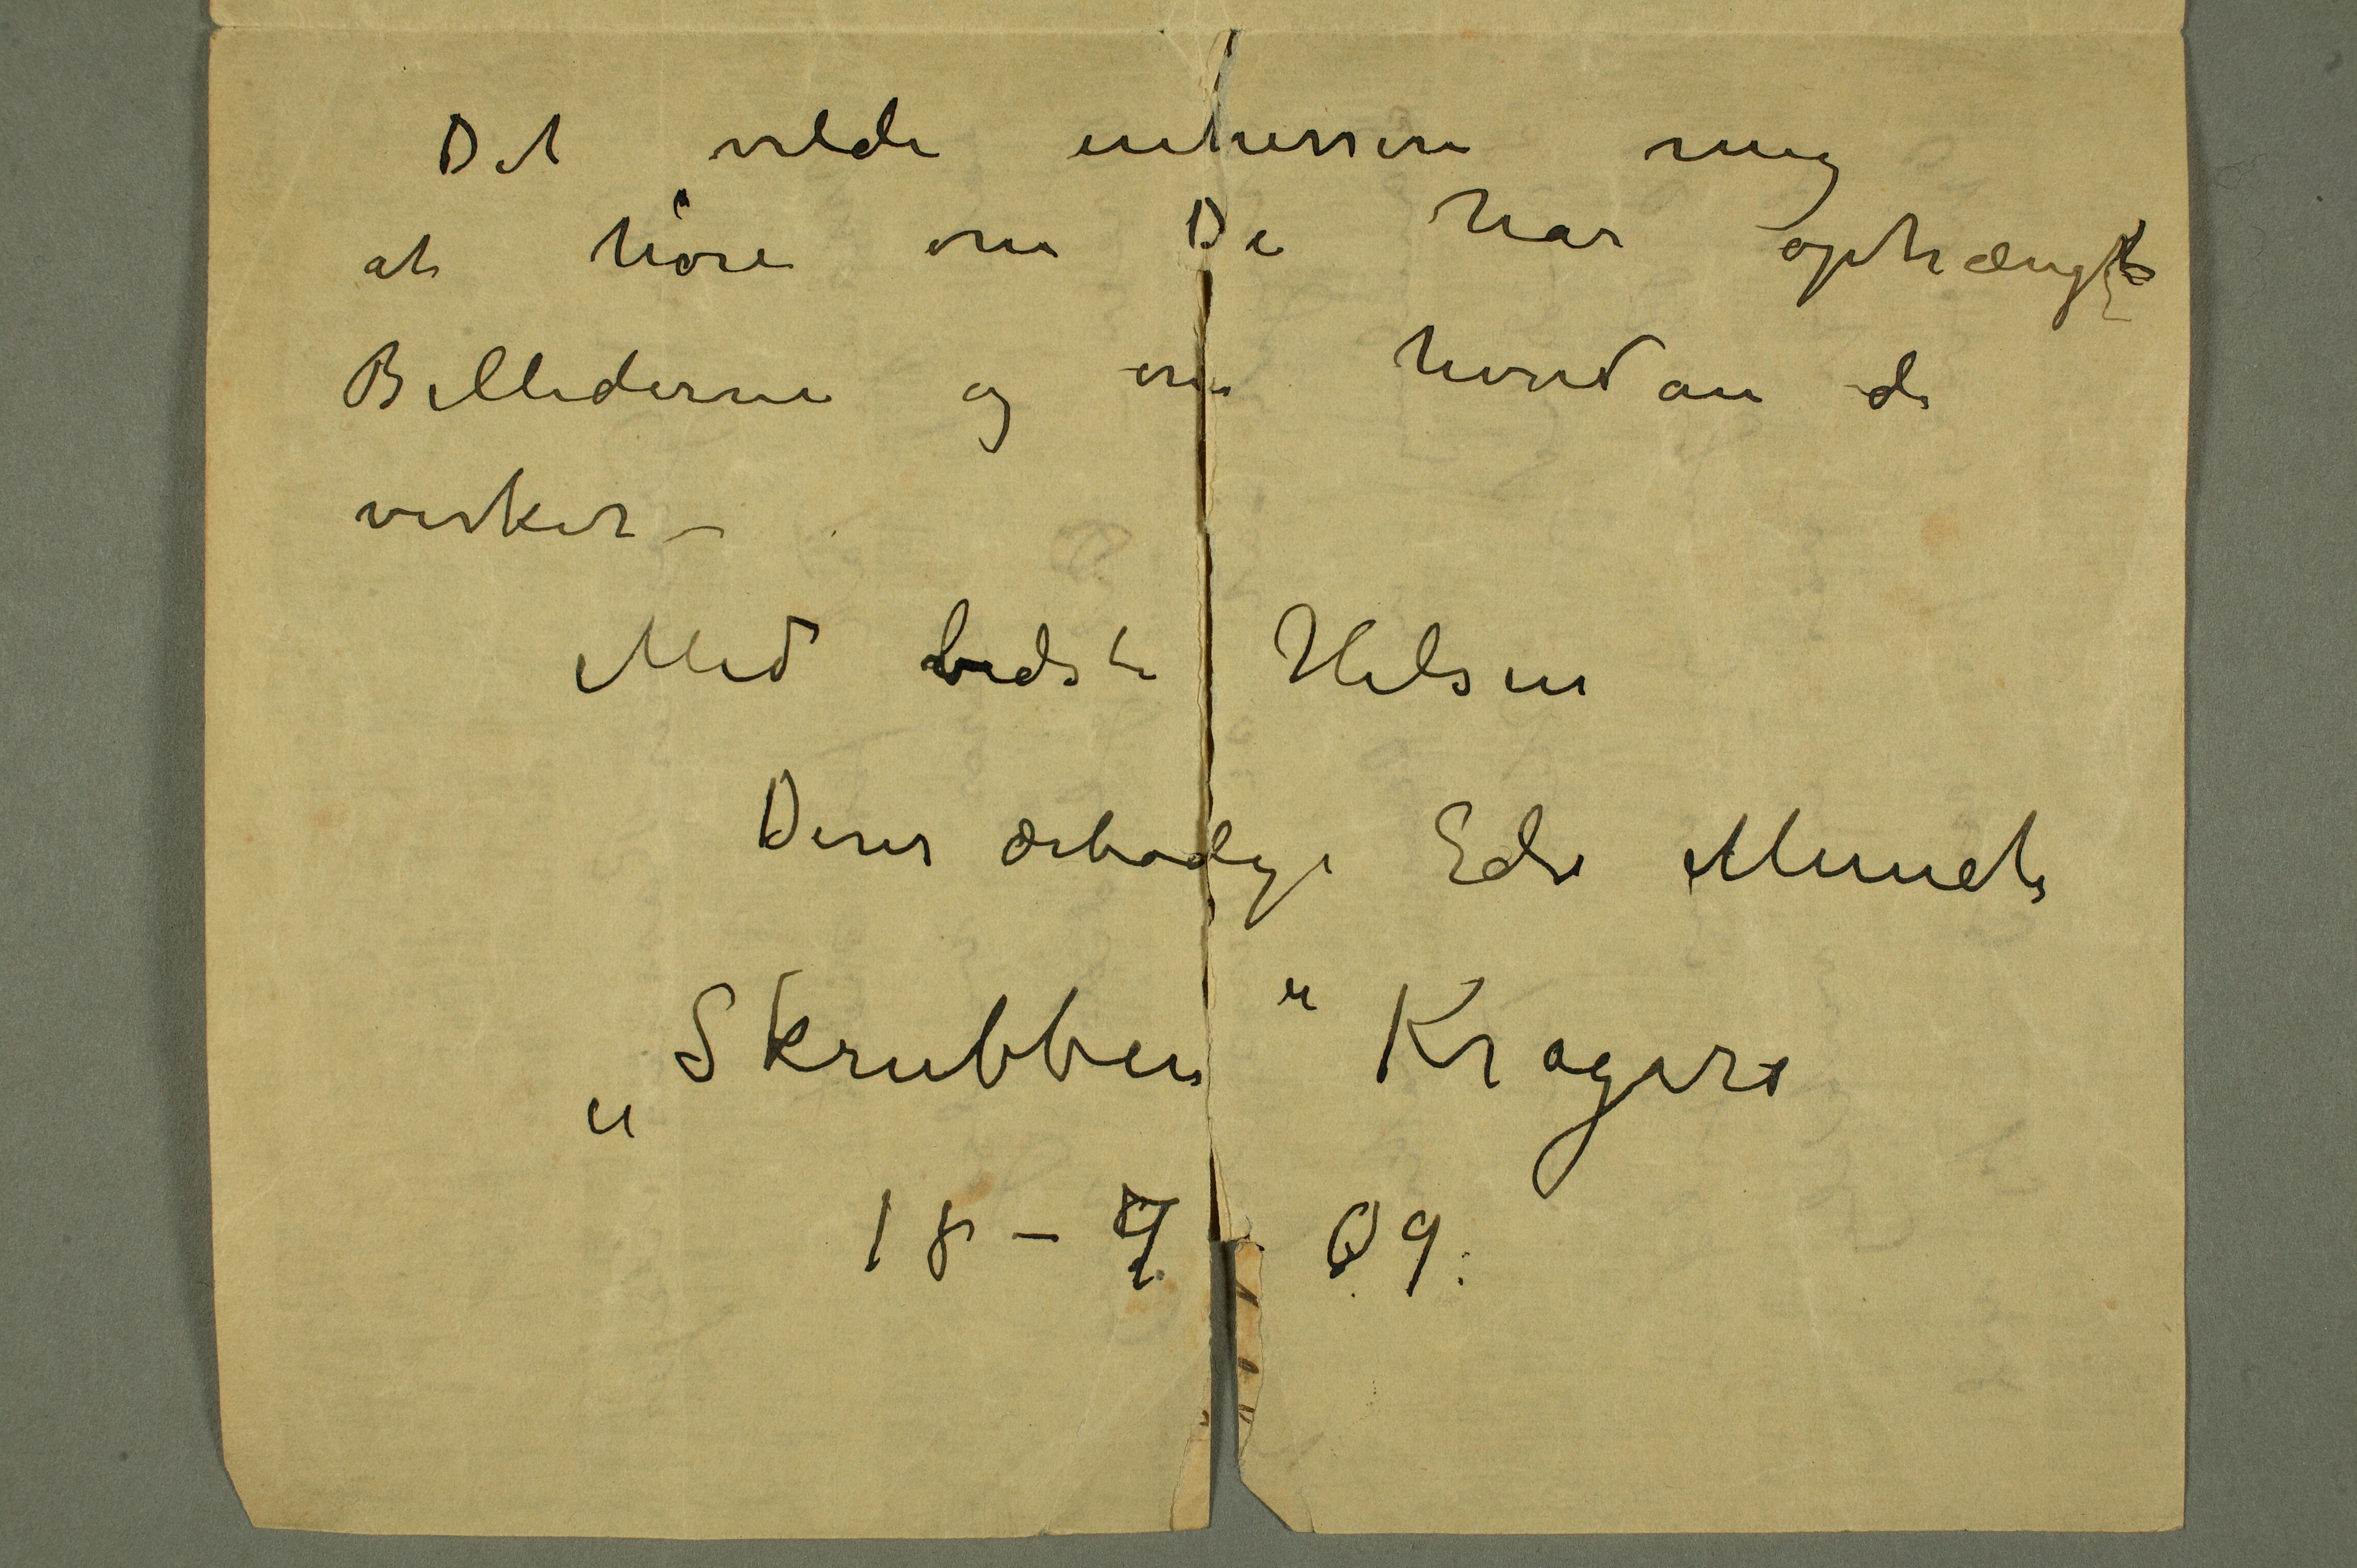 Det vilde interressere mig
at høre om De har ophængt
Billederne og om hvordan de
virker –
Med bedste Hilsen
Deres ærbødige Edv Munch
„Skrubben" Kragerø
18 – 7 09.